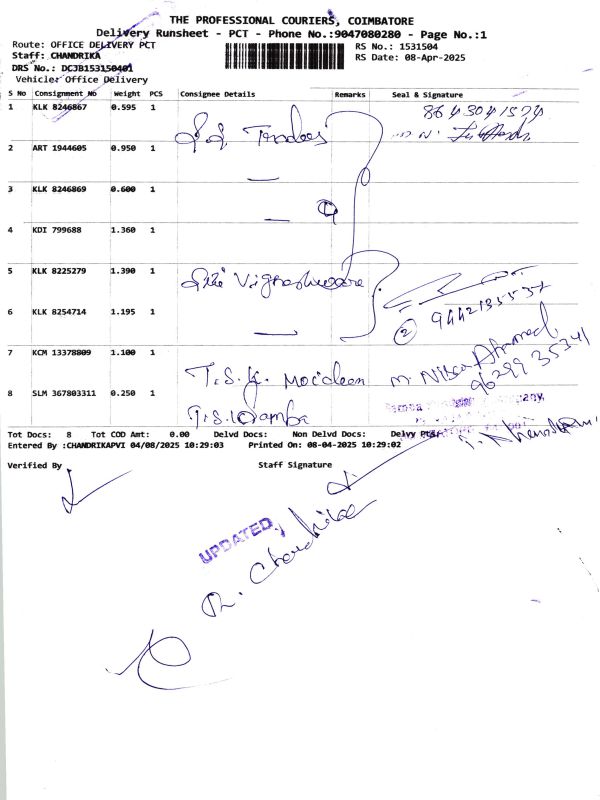 THE PROFESSIONAL COURIERS, COIMBATORE
Delivery Runsheet - PCT - Phone No.:9047080280 - Page No.:1
Route: OFFICE DELIVERY PCT
RS No.: 1531504
Staff: CHANDRIKA
RS Date: 08-Apr-2025
DRS No.: DCJB153150401
Vehicle: Office Delivery
S No Consignment No Weight PCS Consignee Details Remarks Seal & Signature
1 KLK 8246867 0.595 1
2 ART 1944605 0.950 1
3 KLK 8246869 0.600 1
4 KDI 799688 1.360 1
5 KLK 8225279 1.390 1
9442135537
6 KLK 8254714 1.195 1
2
7 KCM 13378809 1.100 1
T.S.K.
9629935341
8 SLM 367803311 0.250 1
Tot Docs: 8 Tot COD Amt: 0.00 Delvd Docs: Non Delvd Docs: Delvy Pts:
Entered By :CHANDRIKAPVI 04/08/2025 10:29:03 Printed On: 08-04-2025 10:29:02
Verified By Staff Signature
UPDATED